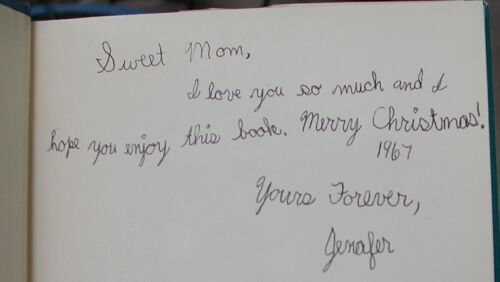 Sweet Mom,
I love you so much and I
hope you enjoy this book. Merry Christmas!
1967
Yours Forever,
Jenafer